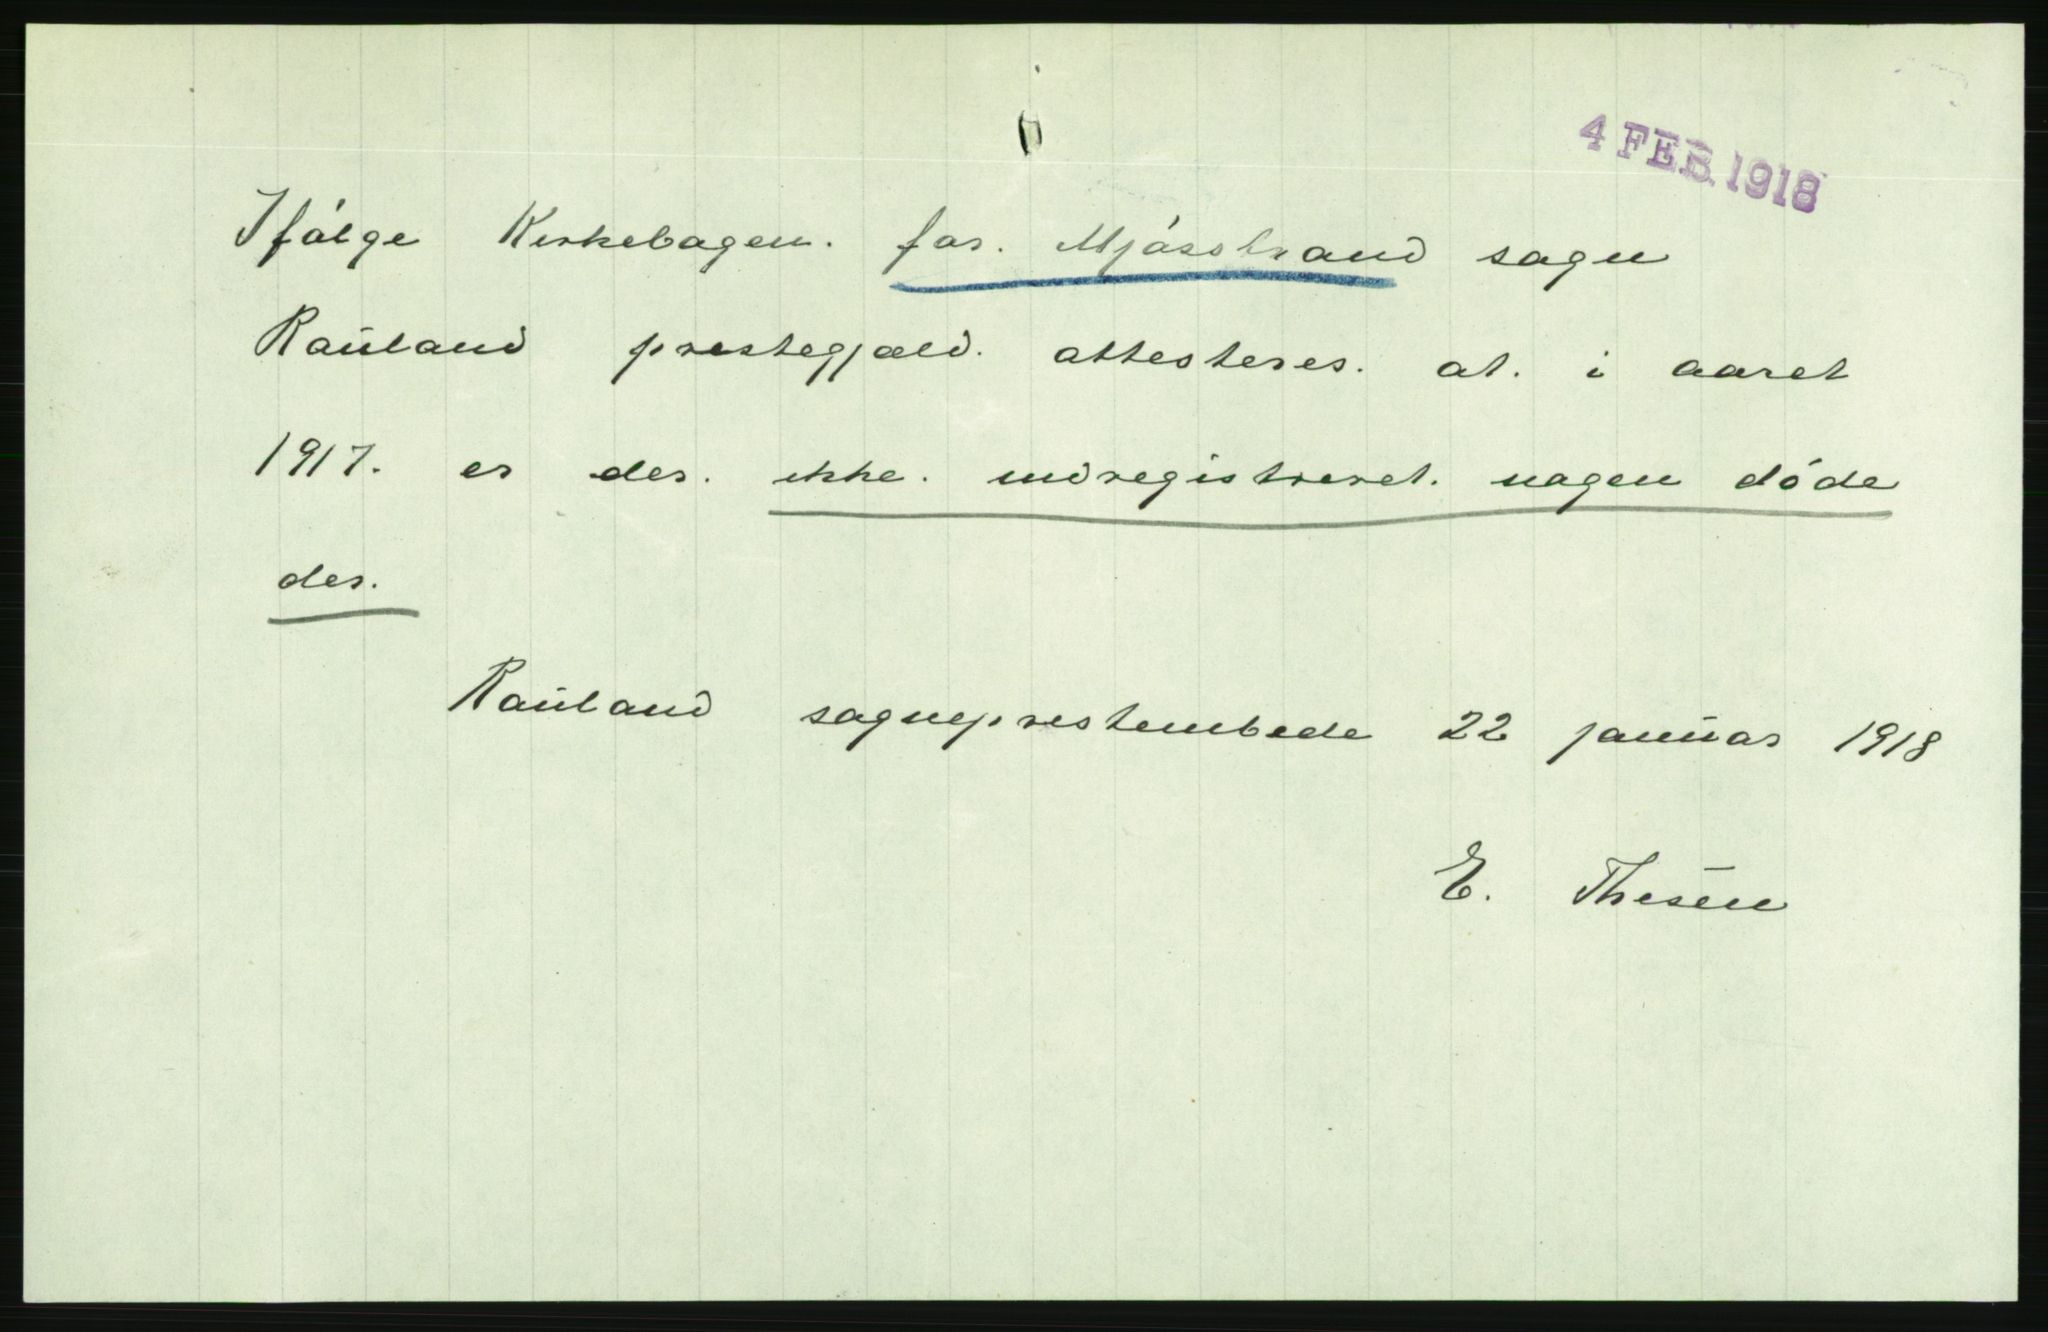 4 FEB. 1918
Ifølge Kirkebogen. for. Mjøsstrand sogn
Rauland prestegjæld. attesteres. at. i aaret
1917. er der. ikke. indregistreret. nogen døde
der.
Rauland sogneprestembede 22 januar 1918
E. Thesen